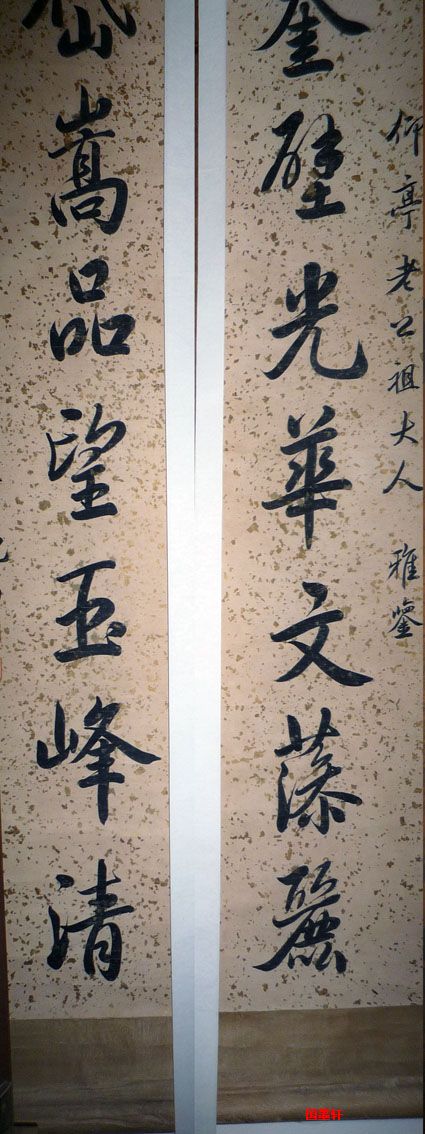 仰亭老公祖大人 雅鑒
奎壁光華文藻麗
岱嵩品望玉峰清
国墨轩